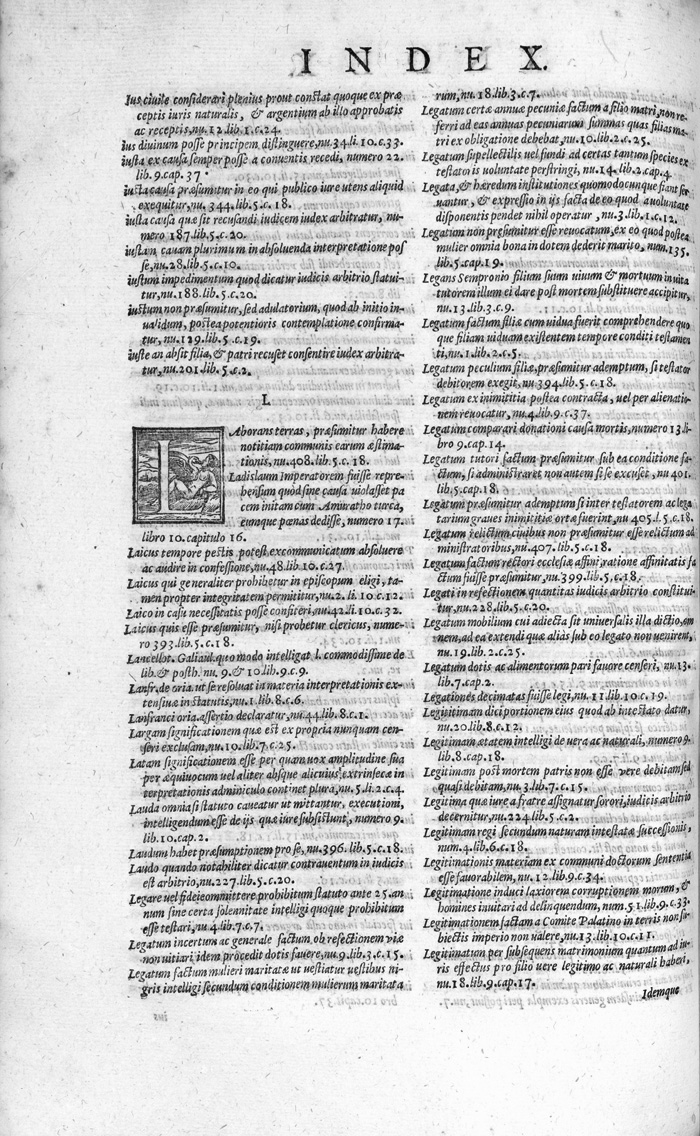 INDEX.
Ius ciuile considerari plenius prout constat quoque ex præ
ceptis iuris naturalis, & argentium ab illo approbatis
ac receptis, nu. 12. lib. 1. c. 24.
ius diuinum posse principem distinguere, nu. 34. li. 10. c. 33.
iusta ex causa semper posse a conuentis recedi, numero 22.
lib. 9. cap. 37.
iusta causa præsumitur in eo qui publico iure utens aliquid
exequitur, nu. 344. lib. 5. c. 18.
iusta causa quæ sit recusandi iudicem iudex arbitratur, nu-
mero 187. lib. 5. c. 20.
iustam cauam plurimum in absoluenda interpretatione pos
se, nu. 28. lib. 5. c. 10.
iustum impedimentum quod dicatur iudicis arbitrio statui-
tur, nu. 188. lib. 5. c. 20.
iustum non præsumitur, sed adulatorium, quod ab initio in-
ualidum, postea potentioris contemplatione confirma-
tur, nu. 129. lib. 5. c. 19.
iuste an absit filia, & patri recuset consentire iudex arbitra-
tur, nu. 201. lib. 5. c. 2.
L
LAborans terras, præsumitur habere
notitiam communis earum æstima-
tionis, nu. 408. lib. 5. c. 18.
Ladislaum Imperatorem fuisse repre-
hensum quòd sine causa uiolasset pa
cem initam cum Amuratho turca,
eumque pœnas dedisse, numero 17.
libro 10. capitulo 16.
Laicus tempore pestis potest excommunicatum absoluere
ac audire in confessione, nu. 48. lib. 10. c. 27.
Laicus qui generaliter prohibetur in episcopum eligi, ta-
men propter integritatem permittitur, nu. 2. li. 10. c. 12.
Laico in casu necessitatis posse confiteri, nu. 42. li. 10. c. 32.
Laicus quis esse præsumitur, nisi probetur clericus, nume-
ro 393. lib. 5. c. 18.
Lancellot. Galiaul. quo modo intelligat l. commodissime de
lib. & posth. nu. 9. & 10. lib. 9. c. 9.
Lanfr. de oria. ut se resoluat in materia interpretationis ex-
tensiuæ in statutis, nu. 1. lib. 8. c. 6.
Lanfranci oria. assertio declaratur, nu. 44. lib. 8. c. 1.
Largam significationem quæ est ex propria nunquam cen-
seri exclusam, nu. 10. lib. 7. c. 25.
Latam significationem esse per quam uox amplitudine sua
per æquiuocum uel aliter absque alicuius, extrinseca in
terpretationis adminiculo continet plura, nu. 5. li. 2. c. 4.
Lauda omnia si statuto caueatur ut mittantur, executioni,
intelligendum esse de ijs quæ iure subsistunt, numero 9.
lib. 10. cap. 2.
Laudum habet præsumptionem pro se, nu. 396. lib. 5. c. 18.
Laudo quando notabiliter dicatur contrauentum in iudicis
est arbitrio, nu. 227. lib. 5. c. 20.
Legare uel fideicommittere prohibitum statuto ante 25. an
num sine certa solennitate intelligi quoque prohibitum
esse testari, nu. 4. lib. 7. c. 7.
Legatum incertum ac generale factum, ob refectionem uiæ
non uitiari idem procedit dotis fauere, nu. 9. lib. 3. c. 15.
Legatum factum mulieri maritatæ ut uestiatur uestibus ni-
gris intelligi secundum conditionem mulierum maritata
rum, nu. 18. lib. 3. c. 7.
Legatum certæ annuæ pecuniæ factum a filio matri, non re-
ferri ad eas annuas pecuniarum summas quas filias ma-
tri ex obligatione debebat, nu. 10. lib. 2. c. 25.
Legatum supellectilis uel fundi ad certas tantum species ex
testatoris uoluntate perstringi, nu. 14. lib. 2. cap. 4.
Legata, & hæredum institutiones quomodocunque fiant ser
uantur, & expressio in ijs facta de eo quod a uoluntate
disponentis pendet nihil operatur, nu. 3. lib. 1. c. 12.
Legatum non præsumitur esse reuocatum, ex eo quod postea
mulier omnia bona in dotem dederit marito, num. 135.
lib. 5. cap. 19.
Legans Sempronio filium suum uiuum & mortuum inuita
tutorem illum ei dare post mortem substituere accipitur,
nu. 13. lib. 3. c. 9.
Legatum factum filiæ cum uidua fuerit comprehendere quo
que filiam uiduam existentem tempore conditi testamen
ti, nu. 1. lib. 2. c. 5.
Legatum peculium filiæ, præsumitur ademptum, si testator
debitorem exegit, nu. 394. lib. 5. c. 18.
Legatum ex inimicitia postea contracta, uel per alienatio-
nem reuocatur, nu. 4. lib. 9. c. 37.
Legatum comparari donationi causa mortis, numero 13. li-
bro 9. cap. 14.
Legatum tutori factum præsumitur sub ea conditione fa-
ctum, si administraret non autem si se excuset, nu 401.
lib. 5. cap. 18.
Legatum præsumitur ademptum si inter testatorem ac lega
tarium graues inimicitiæ ortæ fuerint, nu 405. l. 5. c. 18.
Legatum relictum ciuibus non præsumitur esse relictum ad
ministratoribus, nu. 407. lib. 5. c. 18.
Legatum factum rectori ecclesiæ affini, ratione affinitatis fa
ctum fuisse præsumitur, nu. 399. lib. 5. c. 18.
Legati in refectionem quantitas iudicis arbitrio constitui-
tur, nu. 228. lib. 5. c. 20.
Legatum mobilium cui adiecta sit uniuersalis illa dictio, om
nem, ad ea extendi quæ aliàs sub eo legato non uenirent,
nu. 19. lib. 2. c. 25.
Legatum dotis ac alimentorum pari fauore censeri, nu. 13.
lib. 7. cap. 2.
Legationes decimatas fuisse legi, nu. 11. lib. 10. c. 19.
Legitimam dici portionem eius quod ab intestato datur,
nu. 20. lib. 8. c. 12.
Legitimam ætatem intelligi de uera ac naturali, numero 9.
lib. 8. cap. 18.
Legitimam post mortem patris non esse vere debitam sed
quasi debitam, nu. 3. lib. 7. c. 15.
Legitima quæ iure a fratre assignatur sorori, iudicis arbitrio
decernitur, nu. 224. lib. 5. c. 2.
Legitimam regi secundum naturam intestatæ successionis,
num. 4. lib. 6. c. 18.
Legitimationis materiam ex communi doctorum sententia
esse fauorabilem, nu. 12. lib. 9. c. 34.
Legitimatione induci laxiorem corruptionem morum, &
homines inuitari ad delinquendum, num. 51. lib. 9. c. 33.
Legitimationem factam a Comite Palatino in terris non su-
biectis imperio non ualere, nu. 13. lib. 10. c. 11.
Legitimatum per subsequens matrimonium quantum ad iu-
ris effectus pro filio uere legitimo ac naturali haberi,
nu. 18. lib. 9. cap. 17.
Idemque